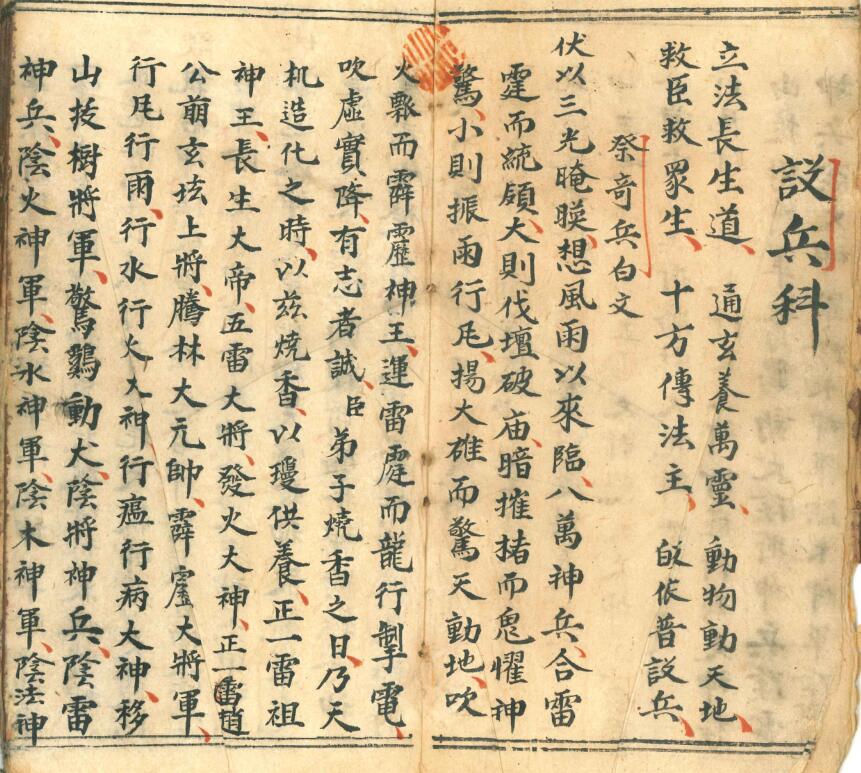 設兵科
立法長生道、通玄養萬靈、動物動天地、
救臣救眾生、十方傳法主、皈依普設兵、
祭奇兵白文
伏以三光晻暎、想風雨以來臨、八萬神兵、合雷
霆而統領、大則伐壇破庙、暗摧啫而鬼懼神
驚、小則振雨行凨、揚大碓而驚天動地、吹
火飄而霹靂神王、運雷霆而龍行掣電、
吹虛實降、有志者誠、臣弟子燒香之日、乃天
机造化之時、以茲燒香、以瓊供養、正一雷祖
神王、長生大帝、五雷大將、發火大神、正一雷道
公崩玄坛上將、騰林大元帥、霹靂大將軍、
行凨行雨、行水行火大神、行瘟行病大神、移
山拔樹將軍、驚鷄動犬、陰將神兵、陰雷
神兵、陰火神軍、陰水神軍、陰木神軍、陰法神